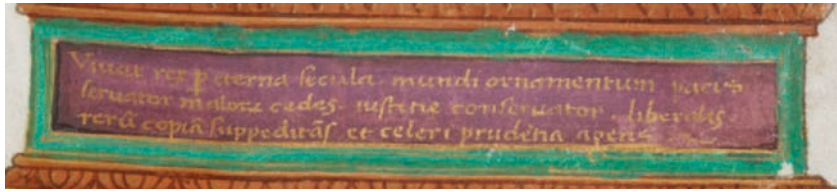 Vivat rex p̱ eterna secula. mundi ornamentum pacis
servator maloꝝ cedes. iustitie conservator. liberalis.
rerū copiā suppeditās et celeri prudētia agens